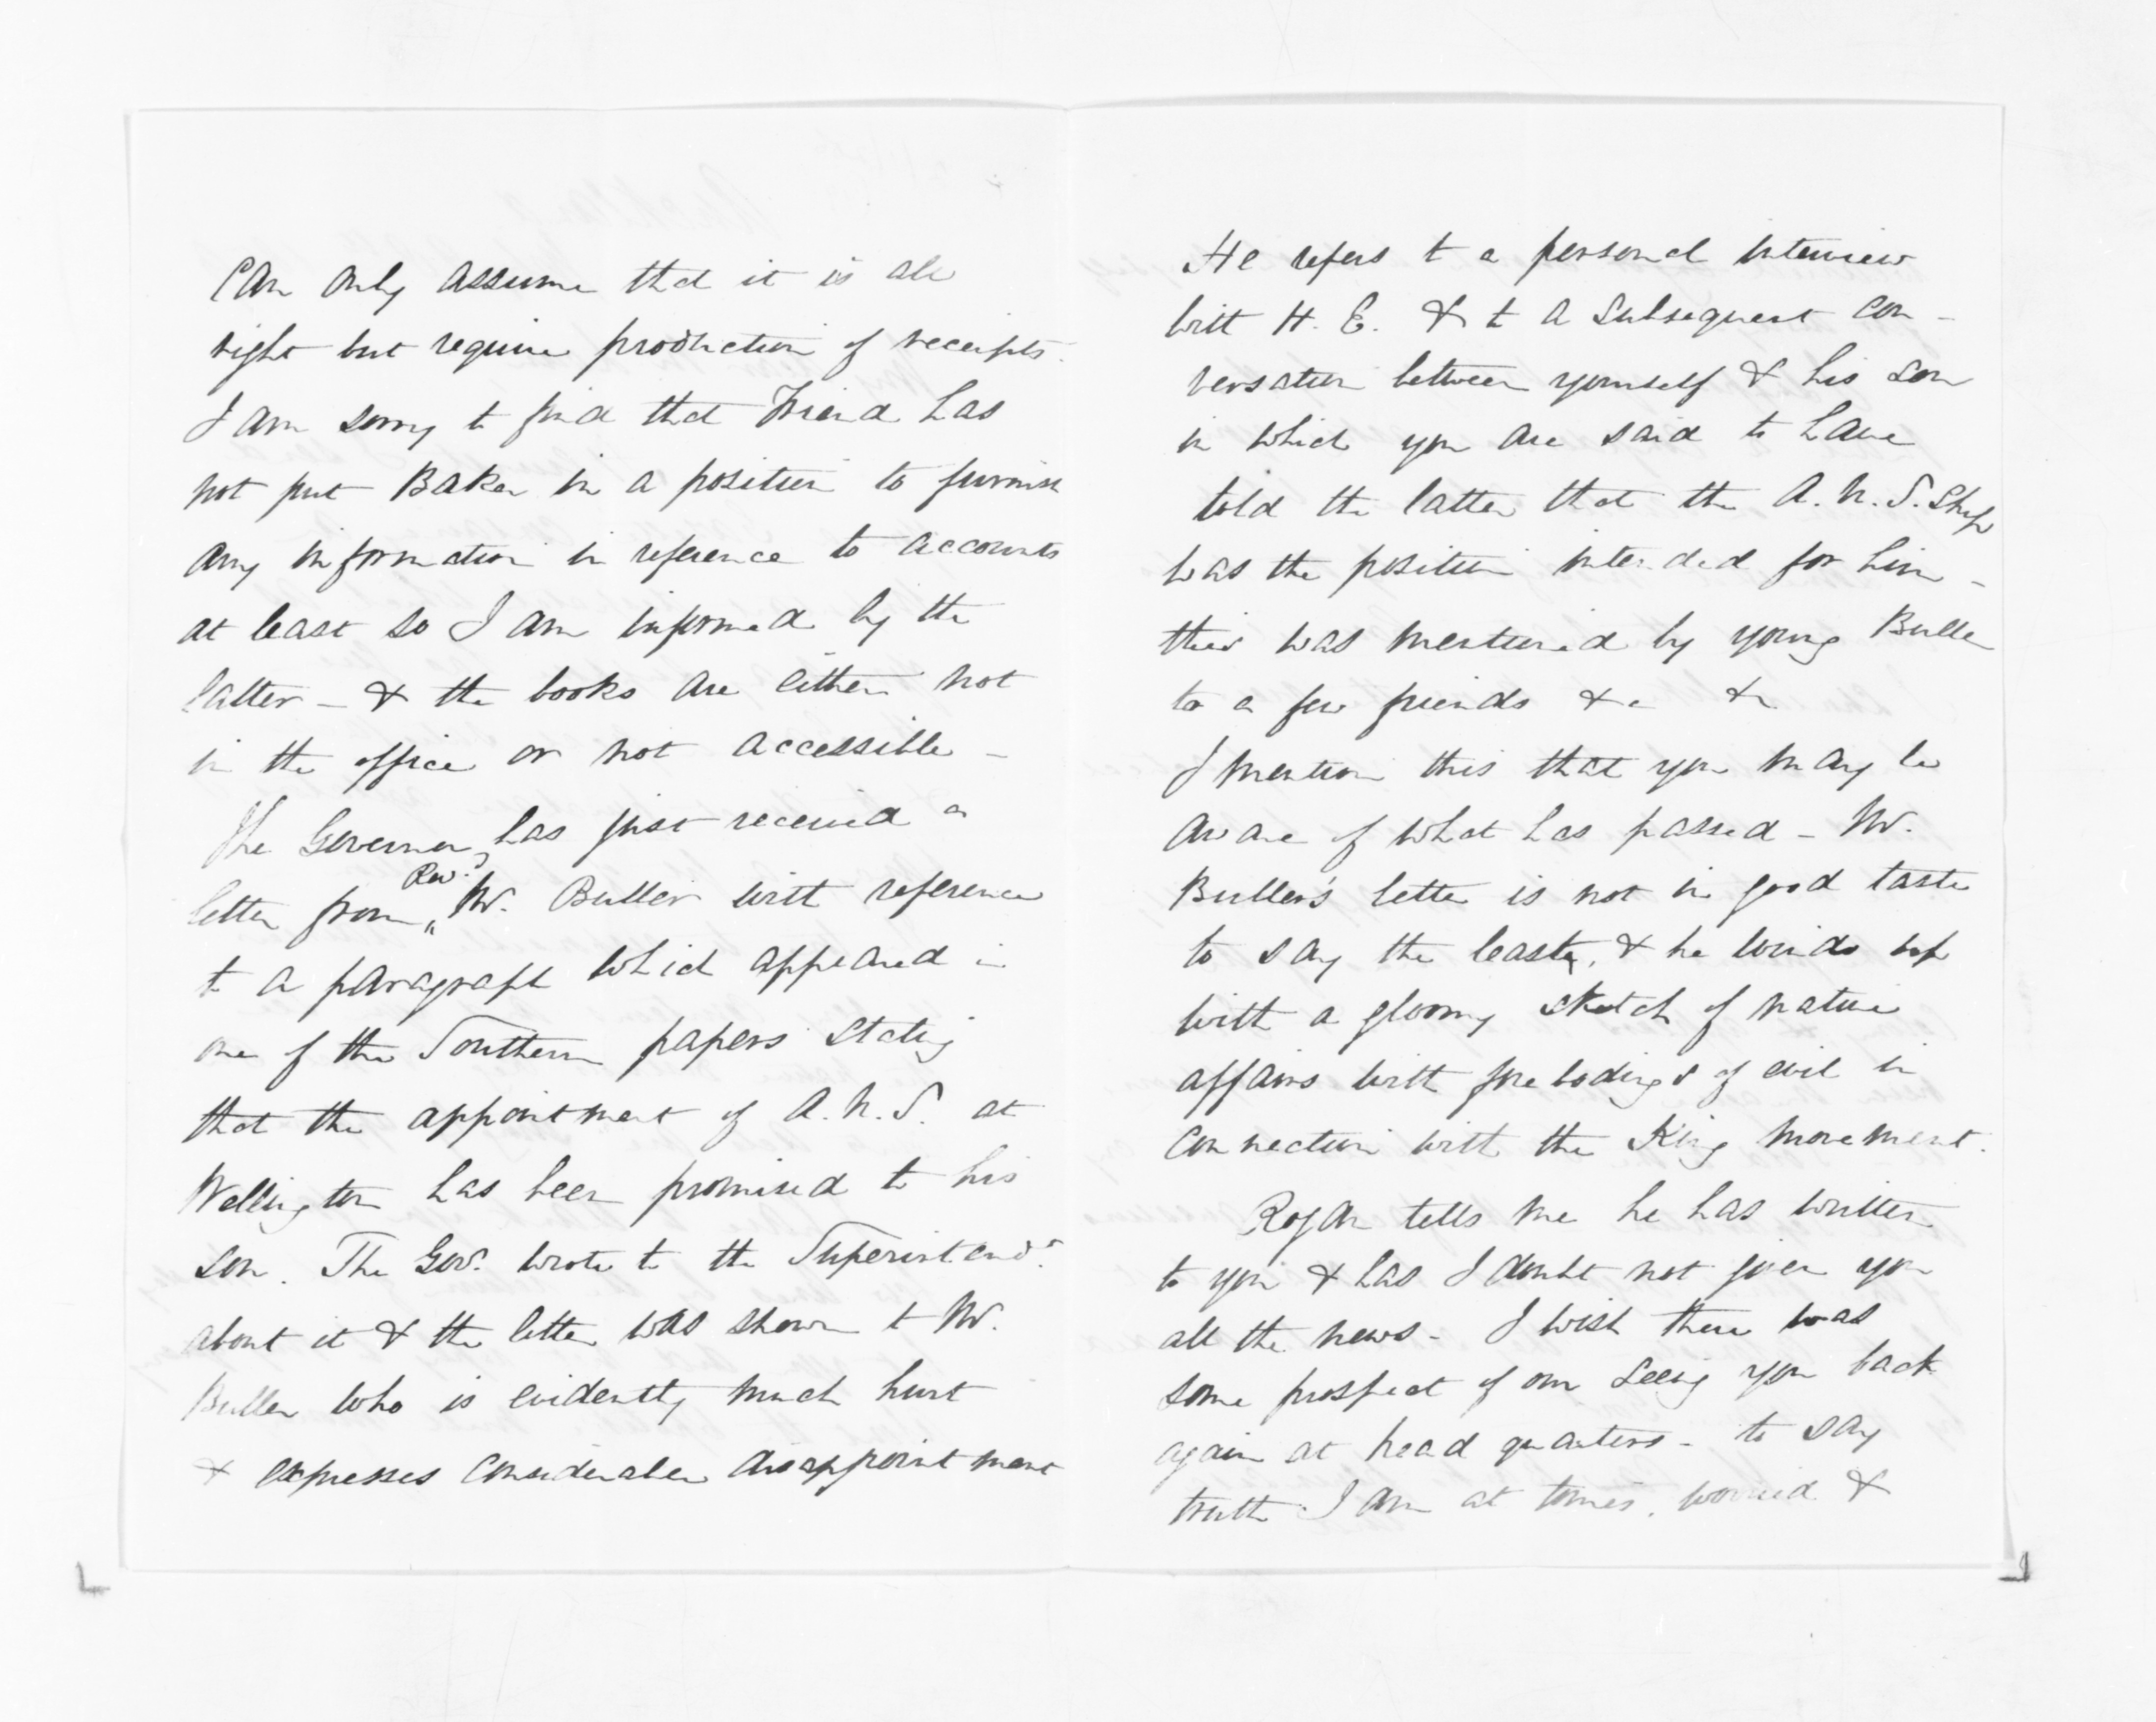 Can only assume that it is all
right but require production of receipts.
I am sorry to find that Friend has
not put Baker in a position to furnish
any information in reference to accounts
at least so I am informed by the
latter - & the books are either not
in the office or not accessible -
The Governor has just received a
letter from Rev. Mr. Buller with reference
to a paragraph which appeared in
one of the Southern papers stating
that the appointment of A.N.S. at
Wellington has been promised to his
son. The Gov. wrote to the Superintendt.
about it & the letter was shown to Mr.
Buller who is evidently much hurt
& expresses considerable disappointment
He refers to a personal interview
with H. E. & to a subsequent con-
versation between yourself & his son
in which you are said to have
told the latter that the A.N.S.Ship
was the position intended for him -
this was mentioned by young Buller
to a few friends &c &c
I mention this that you may be
aware of what has passed - Mr.
Buller's letter is not in good taste
to say the least, & he winds up
with a gloomy sketch of native
affairs with forebodings of evil in
connection with the King movement.
Rogan tells me he has written
to you & has I doubt not given you
all the news - I wish there was
some prospect of our seeing you back
again at head quarters - to say
truth I am at times, worried &